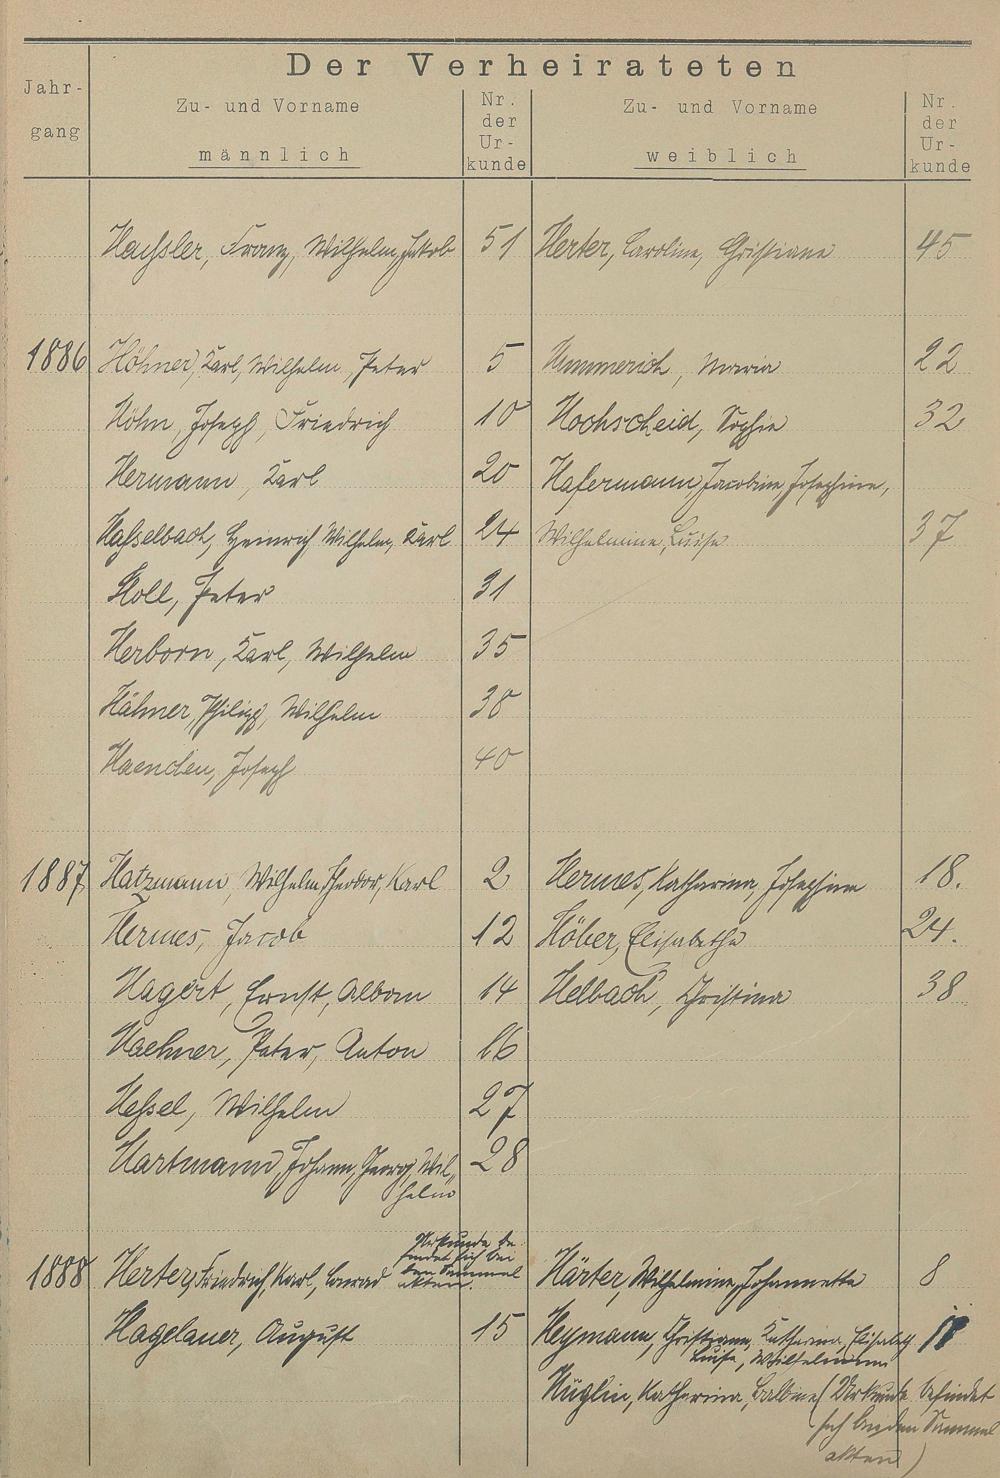 Der Verheirateten
Jahr-
gang
Zu- und Vorname
männlich
Nr.
der
Ur-
kunde
Zu- und Vorname
weiblich
Nr.
der
Ur-
kunde
Haßler, Franz, Wilhelm, Jakob 51 Herter, Caroline, Christiane 45
1886 Höhner, Karl, Wilhelm, Peter 5 Hommerich, Maria 22
Höhn, Joseph, Friedrich 10 Hochscheid, Sophie 32
Hermann, Karl 20 Hafermann, Jacobine, Josephine,
Hasselbach, Heinrich Wilhelm, Karl 24 Wilhelmine, Luise 37
Holl, Peter 31
Herborn, Karl, Wilhelm 35
Hähner, Philipp, Wilhelm 38
Haenden, Joseph 40
1887 Hatzmann, Wilhelm, Theodor, Karl 2 Hermes, Katharina, Josephine 18.
Hermes, Jacob 12 Höber, Elisabetha 24.
Hagert, Ernst, Alboin 14 Helbach, Christina 38
Haehner, Peter, Anton 16
Hessel, Wilhelm 27
Hartmann, Johann, Georg, Wil-
helm 28
Urkunde be-
findet sich bei
den Sammel
akten.
1888 Herter, Friedrich, Karl, Conrad Härter, Wilhelmine, Johannette 8
Hagelauer, August 15 Heymann, Christiane, Katharina, Elisabeth
Luise, Wilhelmine
Hüglin, Katharina, Balbine (Urkunde befindet
sich bei den Sammel
akten)